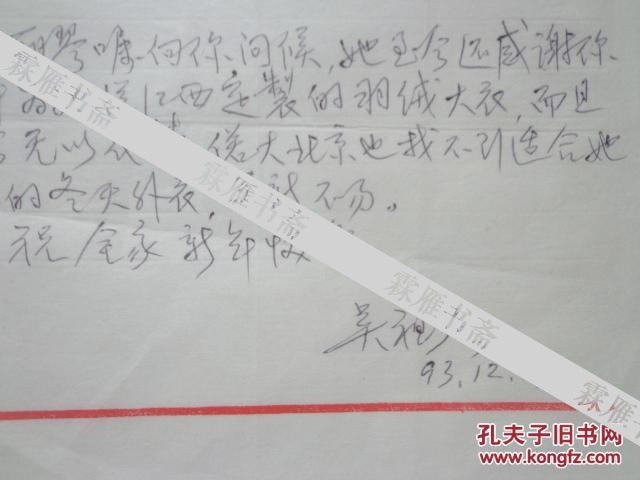 琴嘱向你问候，她至今还感谢你
江西定製的羽绒大衣，而且
无以 偌大北京也找不到适合她
的冬天外衣， 不易。
祝全家新年
吴祖
93.12.
霖雁书斋
霖雁书斋
霖雁书斋
霖雁书斋
孔夫子旧书网
www.kongfz.com